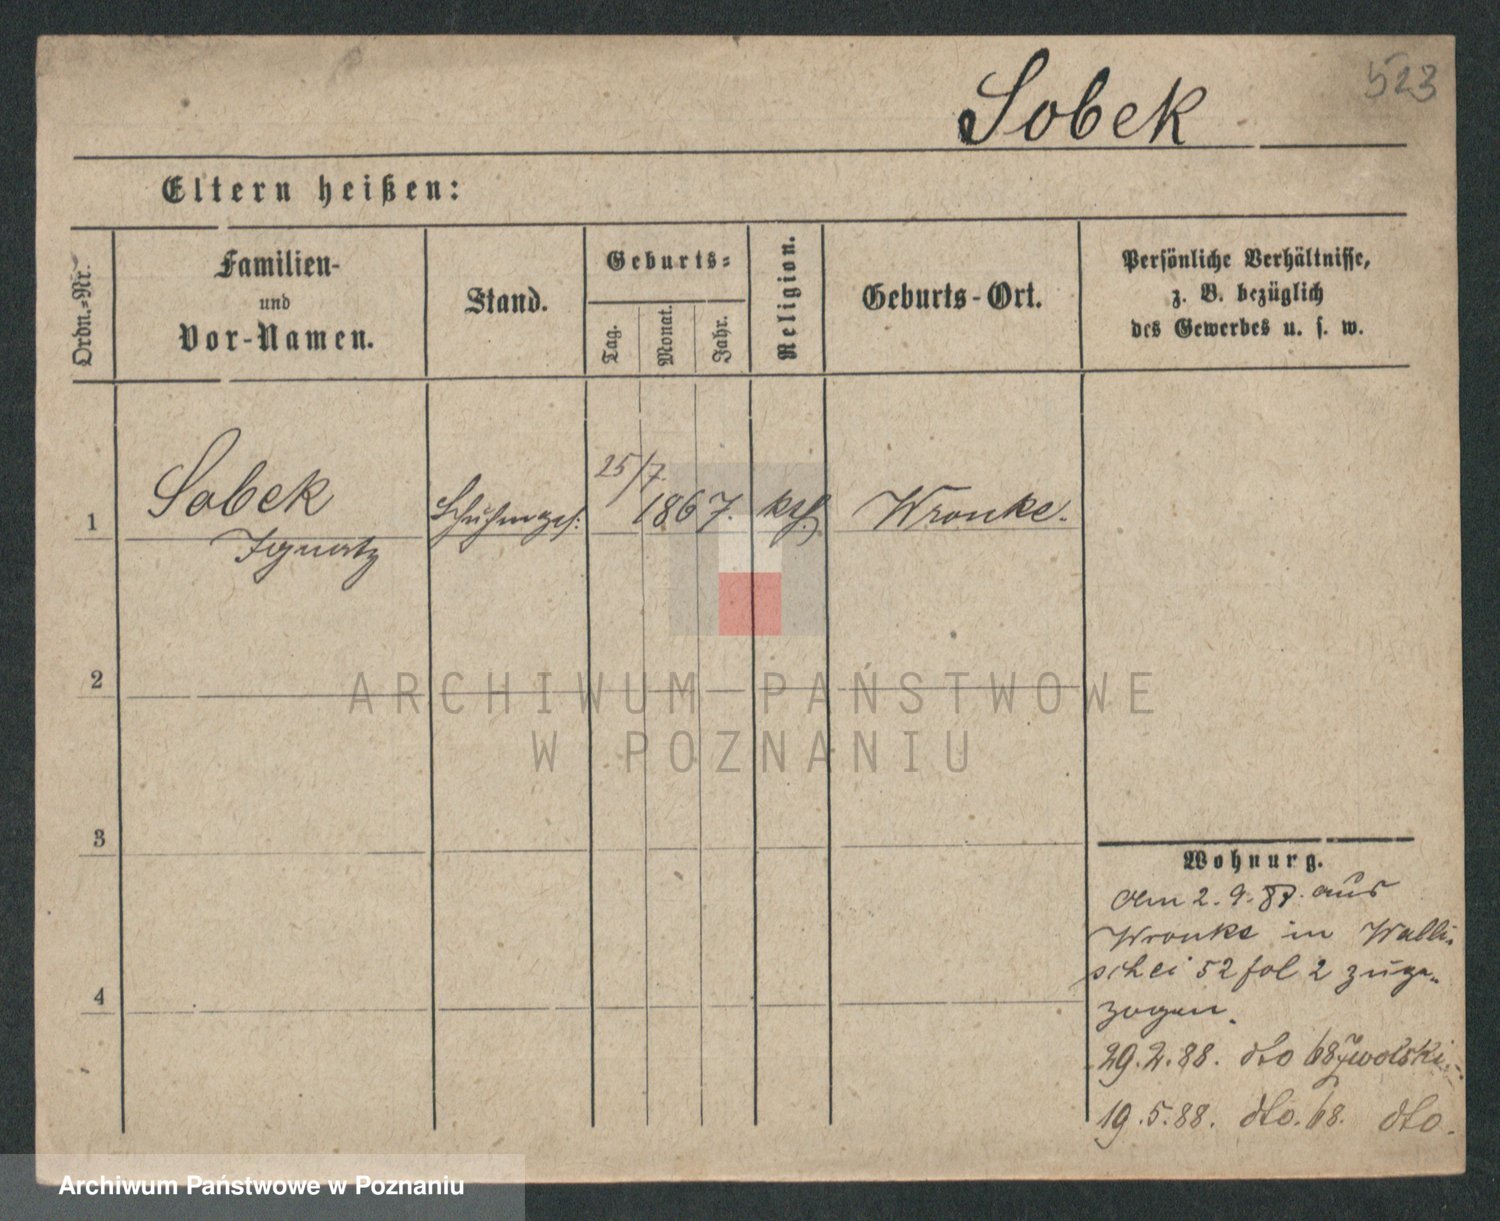 523
Sobek
Eltern heißen:
Ordn.-Nr.
Familien-
und
Vor-Namen.
Stand.
Geburts-
Tag.
Monat.
Jahr.
Religion.
Geburts-Ort.
Persönliche Verhältnisse,
z. B. bezüglich
des Gewerbes u. s. w.
1
Sobek
Ignatz
Schuhmges:
25/7.
1867.
kth
Wronke.
2
ARCHIWUM PAŃSTWOWE
W POZNANIU
3
4
Wohnurg.
Am 2. 9. 87. aus
Wronke in Walli-
schei 52 fol 2 zuge-
zogen.
29.2.88. dto 68
19.5.88. dto. 68. dto.
Archiwum Państwowe w Poznaniu